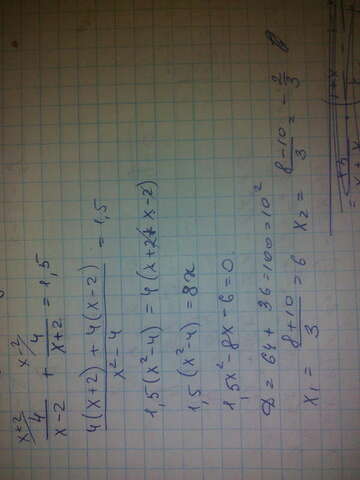 x+2/ 4/(x-2) + x-2/ 4/(x+2) = 1,5
(4(x+2) + 4(x-2))/(x²-4) = 1,5
1,5(x²-4) = 4(x+2+x-2)
1,5(x²-4) = 8x
1,5x²-8x-6=0
D = 64 + 36 = 100 = 10²
x₁ = (8+10)/3 = 6 x₂ = (8-10)/3 = -2/3